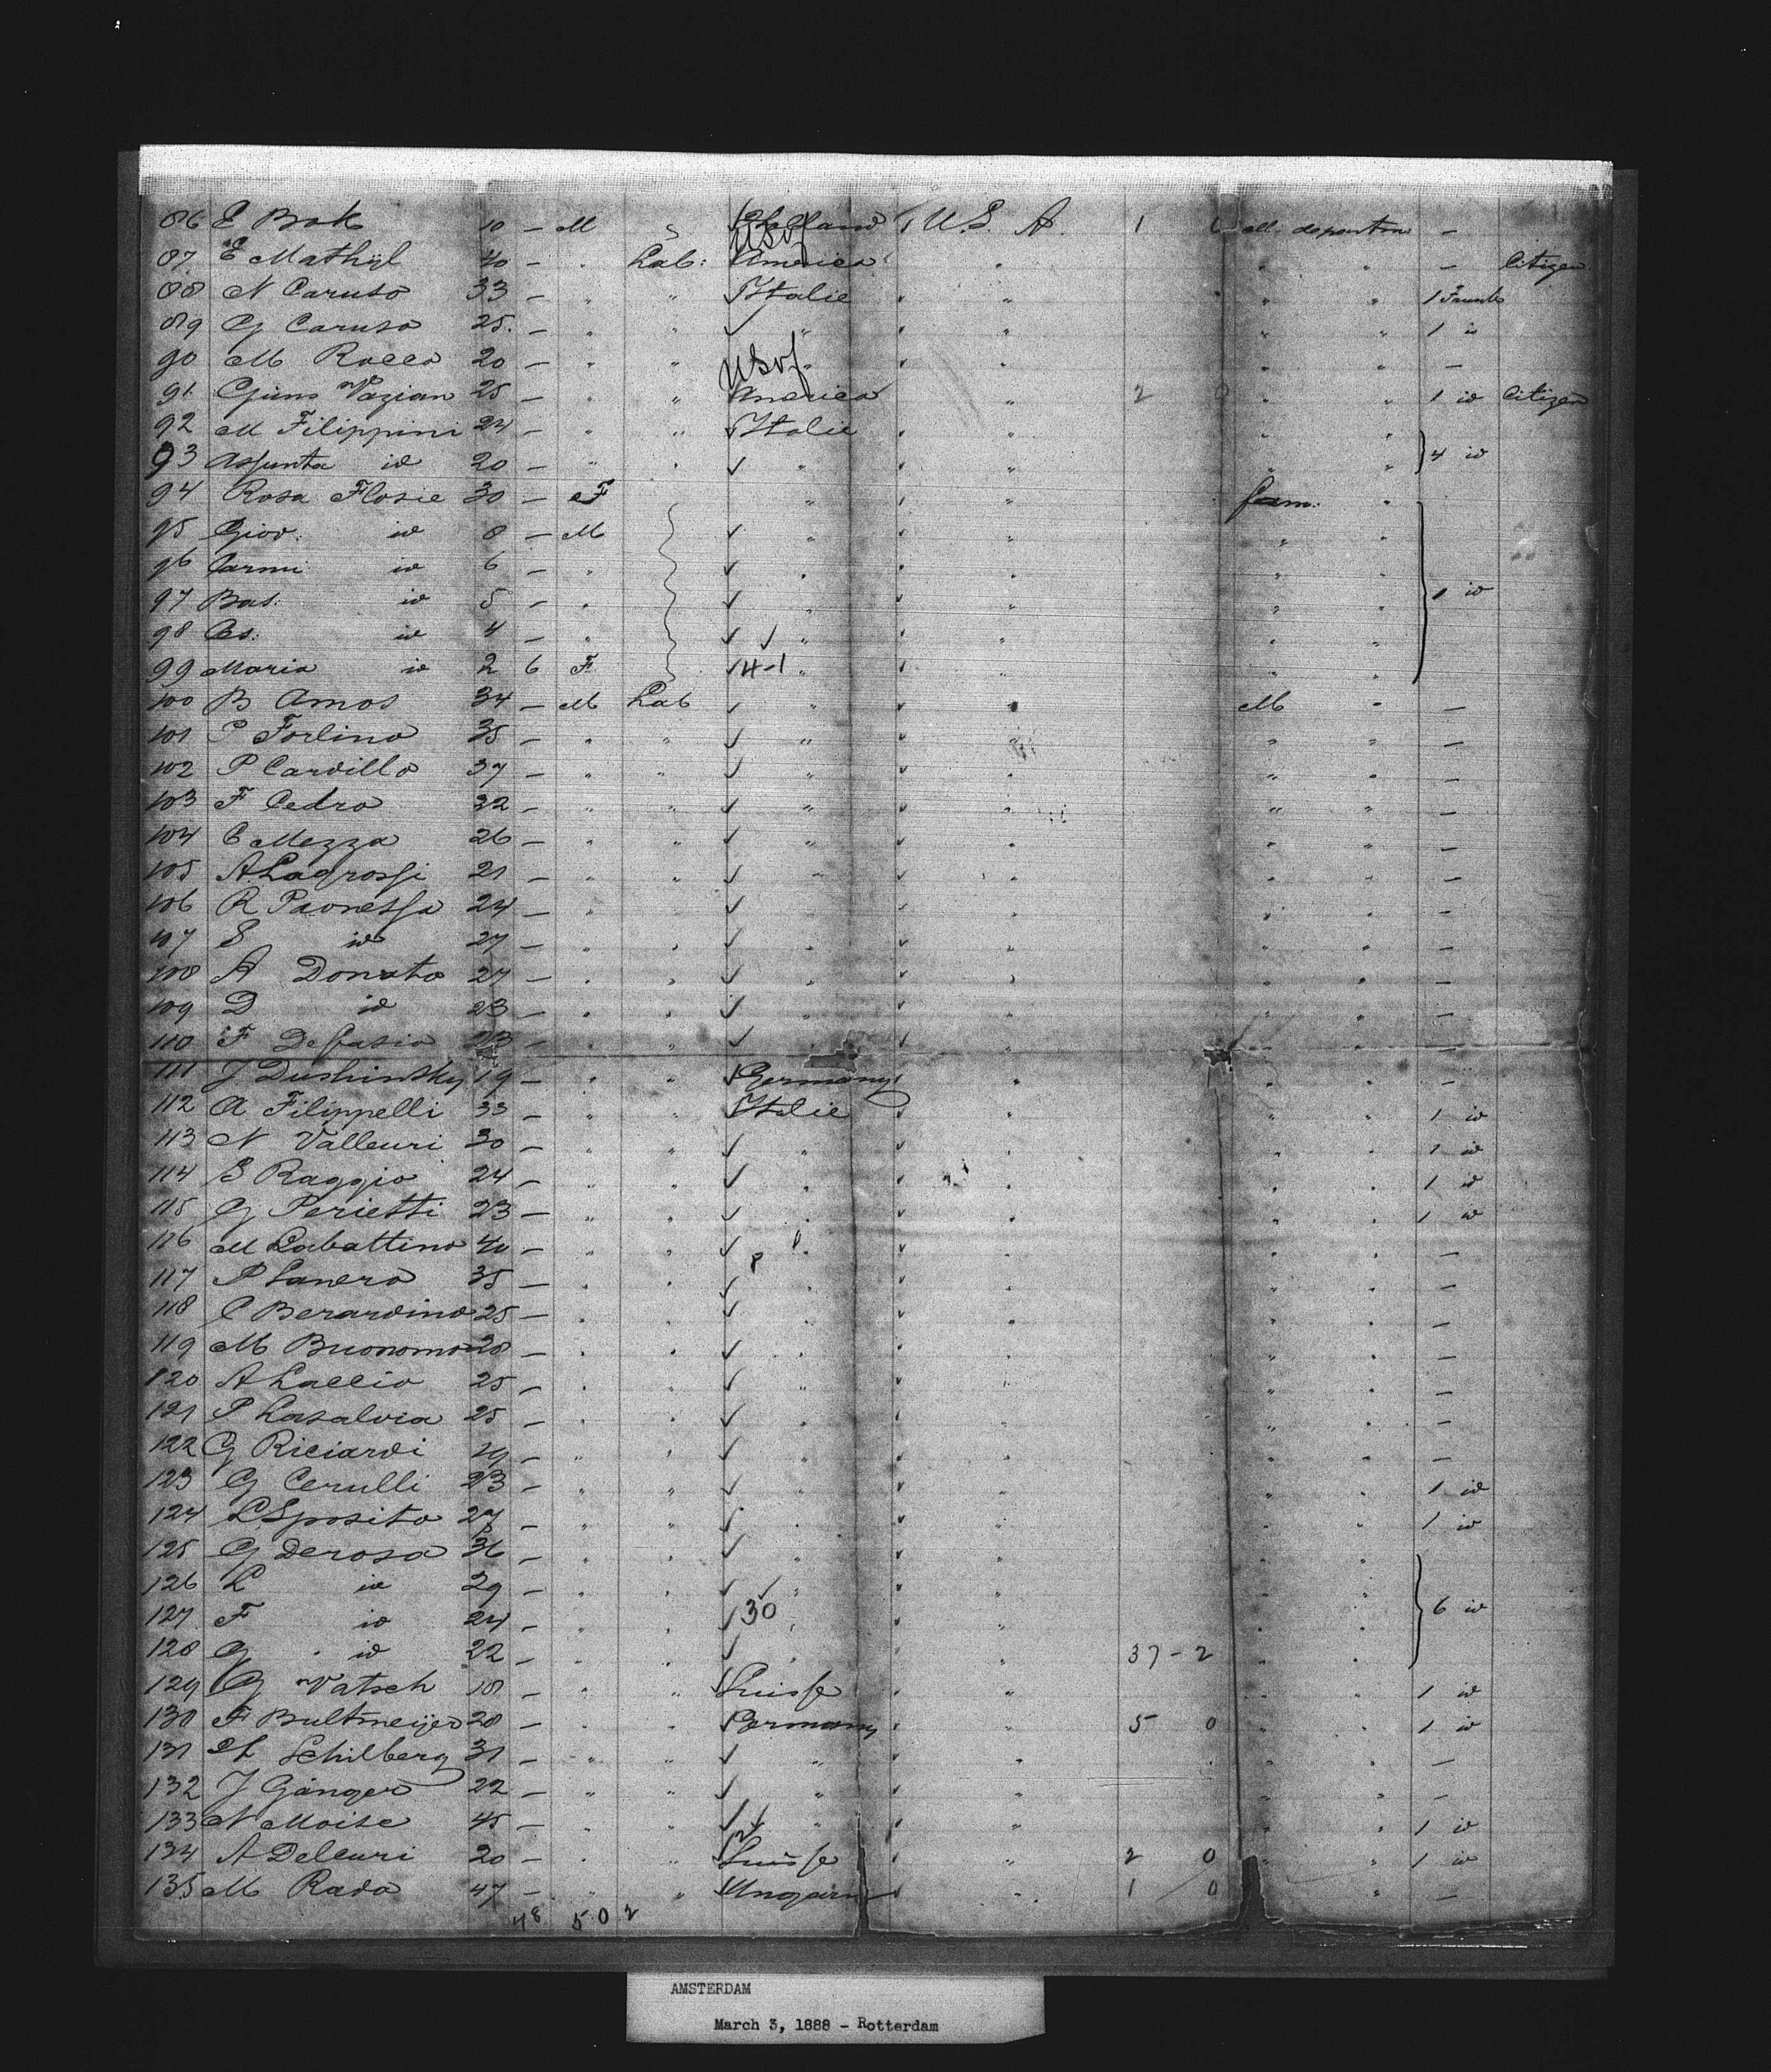 86 E Bok 10 — M Holland U.S. A. 1 0 M. departm —
87 E Mathijl 40 — " Lab: USof America " " " — Citizen
88 N Caruso 33 — " " Italie " " " 1 Trunk
89 G Caruso 25. — " " " " " " 1 id
90 M Rocco 20 — " " " " " " —
91 Giuns Vazian 25 — " " USof America " 2 0 " " 1 id Citizen
92 M Filippini 24 — " " Italie " " "
93 Assunta id 20 — " " " " " " 4 id
94 Rosa Flosie 30 — F " " fam: "
95 Giov: id 8 — M " " " "
96 Carmi id 6 — " " " " "
97 Bas: id 5 — " " " " " 1 id
98 Ces: id 4 — " " " " "
99 Maria id 2 6 F 4-1 " " " "
100 B Amos 34 — M Lab " " M " —
101 P Forlino 35 — " " " " " " —
102 P Cardillo 37 — " " " " " " —
103 F Cedro 22 — " " " " " " —
104 C Mezza 26 — " " " " " " —
105 A Lagrossi 21 — " " " " " " —
106 R Paonessa 24 — " " " " " " —
107 S id 27 — " " " " " " —
108 A Donato 27 — " " " " " " —
109 D id 23 — " " " " " " —
110 F Defasio 23 — " " " " " " —
111 J Dushinsky 19 — " " Germany " " " —
112 A Filippelli 33 — " " Italie " " " 1 id
113 N Valleuri 30 — " " " " " " 1 id
114 S Raggio 24 — " " " " " " 1 id
115 G Perietti 23 — " " " " " " 1 id
116 M Labattino 40 — " " " " " " —
117 P Lanera 35 — " " " " " " —
118 C Berardino 25 — " " " " " " —
119 M Buonomo 28 — " " " " " " —
120 A Laccio 25 — " " " " " " —
121 P Lasalvia 25 — " " " " " " —
122 G Riciardi 19 — " " " " " " —
123 G Cerulli 23 — " " " " " " 1 id
124 L Sposito 27 — " " " " " " 1 id
125 G Derosa 36 — " " " " " "
126 L id 29 — " " " " " "
127 F id 24 — " " 30 " " " " 6 id
128 G id 22 — " " " " 37 - 2 " "
129 G Vatsch 18 — " " Suisse " " " 1 id
130 F Bultmeijer 28 — " " Germany " 5 0 " " 1 id
131 H Schilberg 31 — " " " " " " —
132 J Gänger 22 — " " " " " " —
133 N Moise 45 — " " " " " " 1 id
134 A Deleuri 20 — " " Suisse " 2 0 " " 1 id
135 M Rada 47 — " " Ungarn " 1 0 " —
48 50 2
AMSTERDAM
March 3, 1888 - Rotterdam